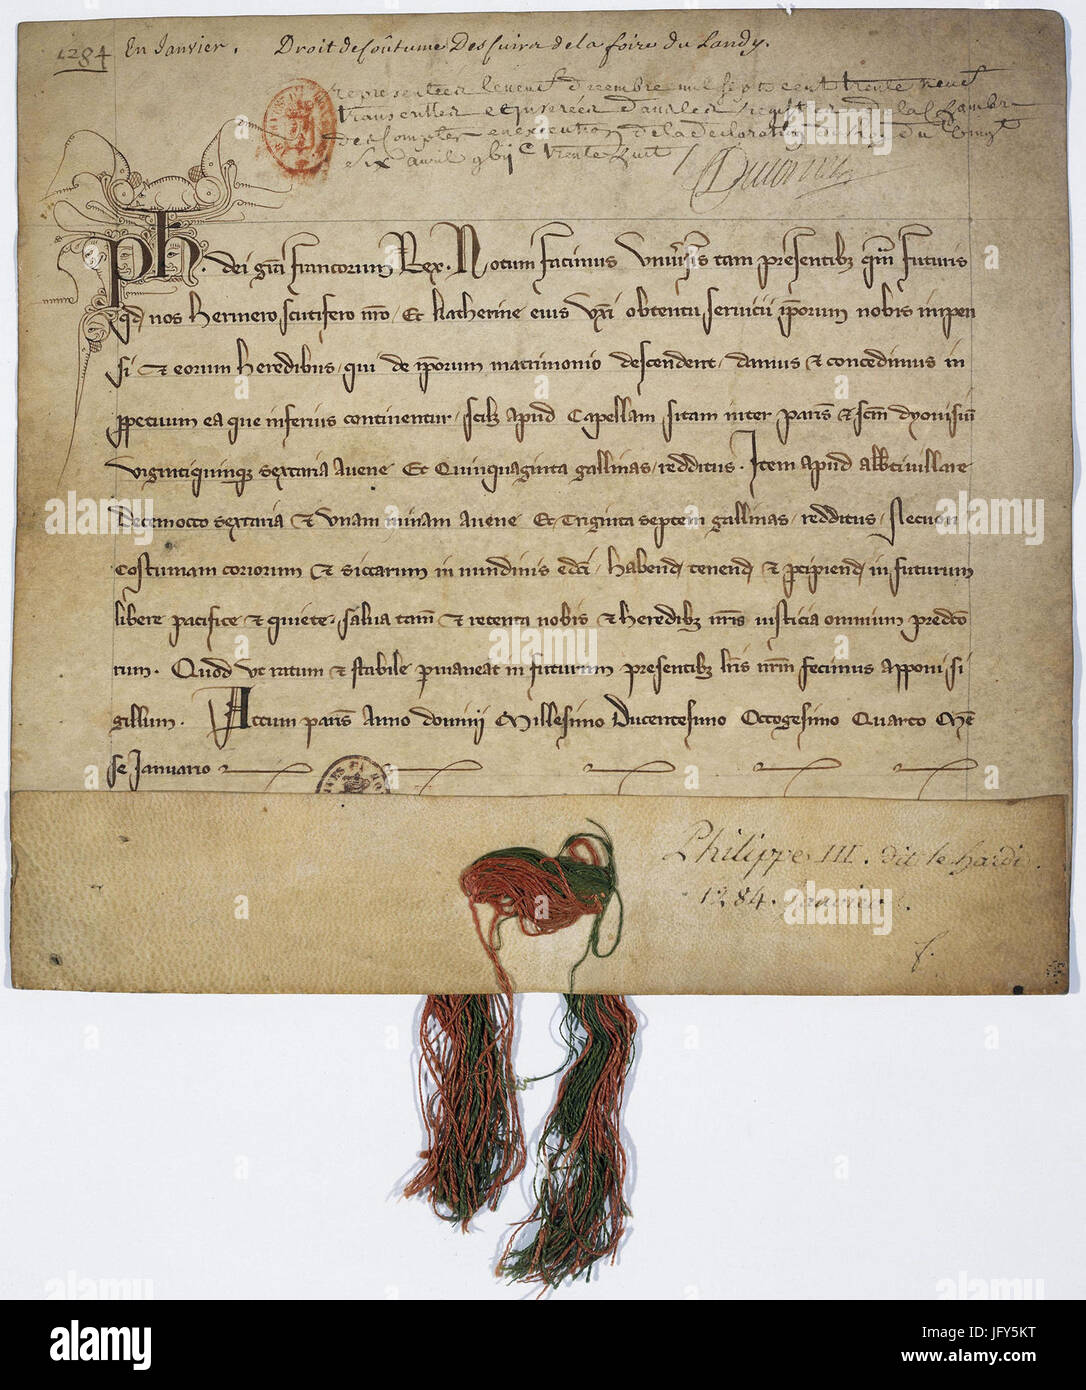 1284 En Janvier. Droit de Coûtume Des Cuirs de la foire du Landy.
representées le neuf Decembre mil sept cent trente neuf
transcrittes et inserées dans les registres de la Chambre
des Comptes en execution de la declaration du Roy du
six avril
Ph. dei gra francorum Rex. Notum facimus Univsis tam presentibz qm futuris
qd nos Hermero scutifero nro, Et Katherine eius Uxi obtentu servicii iporum nobis impen
si Et eorum heredibus, qui de iporum matrimonio descendent, damus & concedimus in
ppetuum ea que inferius continentur, scilz apud Capellam sitam inter paris & scm dyonisiu
viginti quinqz sextaria avene Et Quinquaginta gallinas, redditus. Item apud albtivillare
Decemocto sextaria & unam minam avene Et Triginta septem gallinas, redditus, Necnon
Costumam coriorum & siccarum in nundinis edci, habend tenend & pcipiend in futurum
libere pacifice & quiete, salva tam & retenta nobis & heredibz nris iusticia omnium predco
rum. Quod ut ratum & stabile pmaneat in futurum presentibz lris nrm fecimus apponi si
gillum. Actum paris Anno domini Millesimo Ducentesimo Octogesimo Quarto Me
se Januario
Philippe III. dit le hardi.
1284. Janvier.
alamy
Image ID: JFY5KT
www.alamy.com